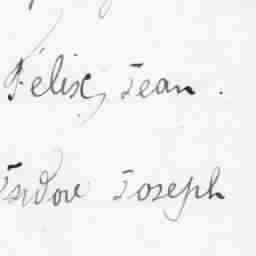 Félix, Jean.
Isidore Joseph